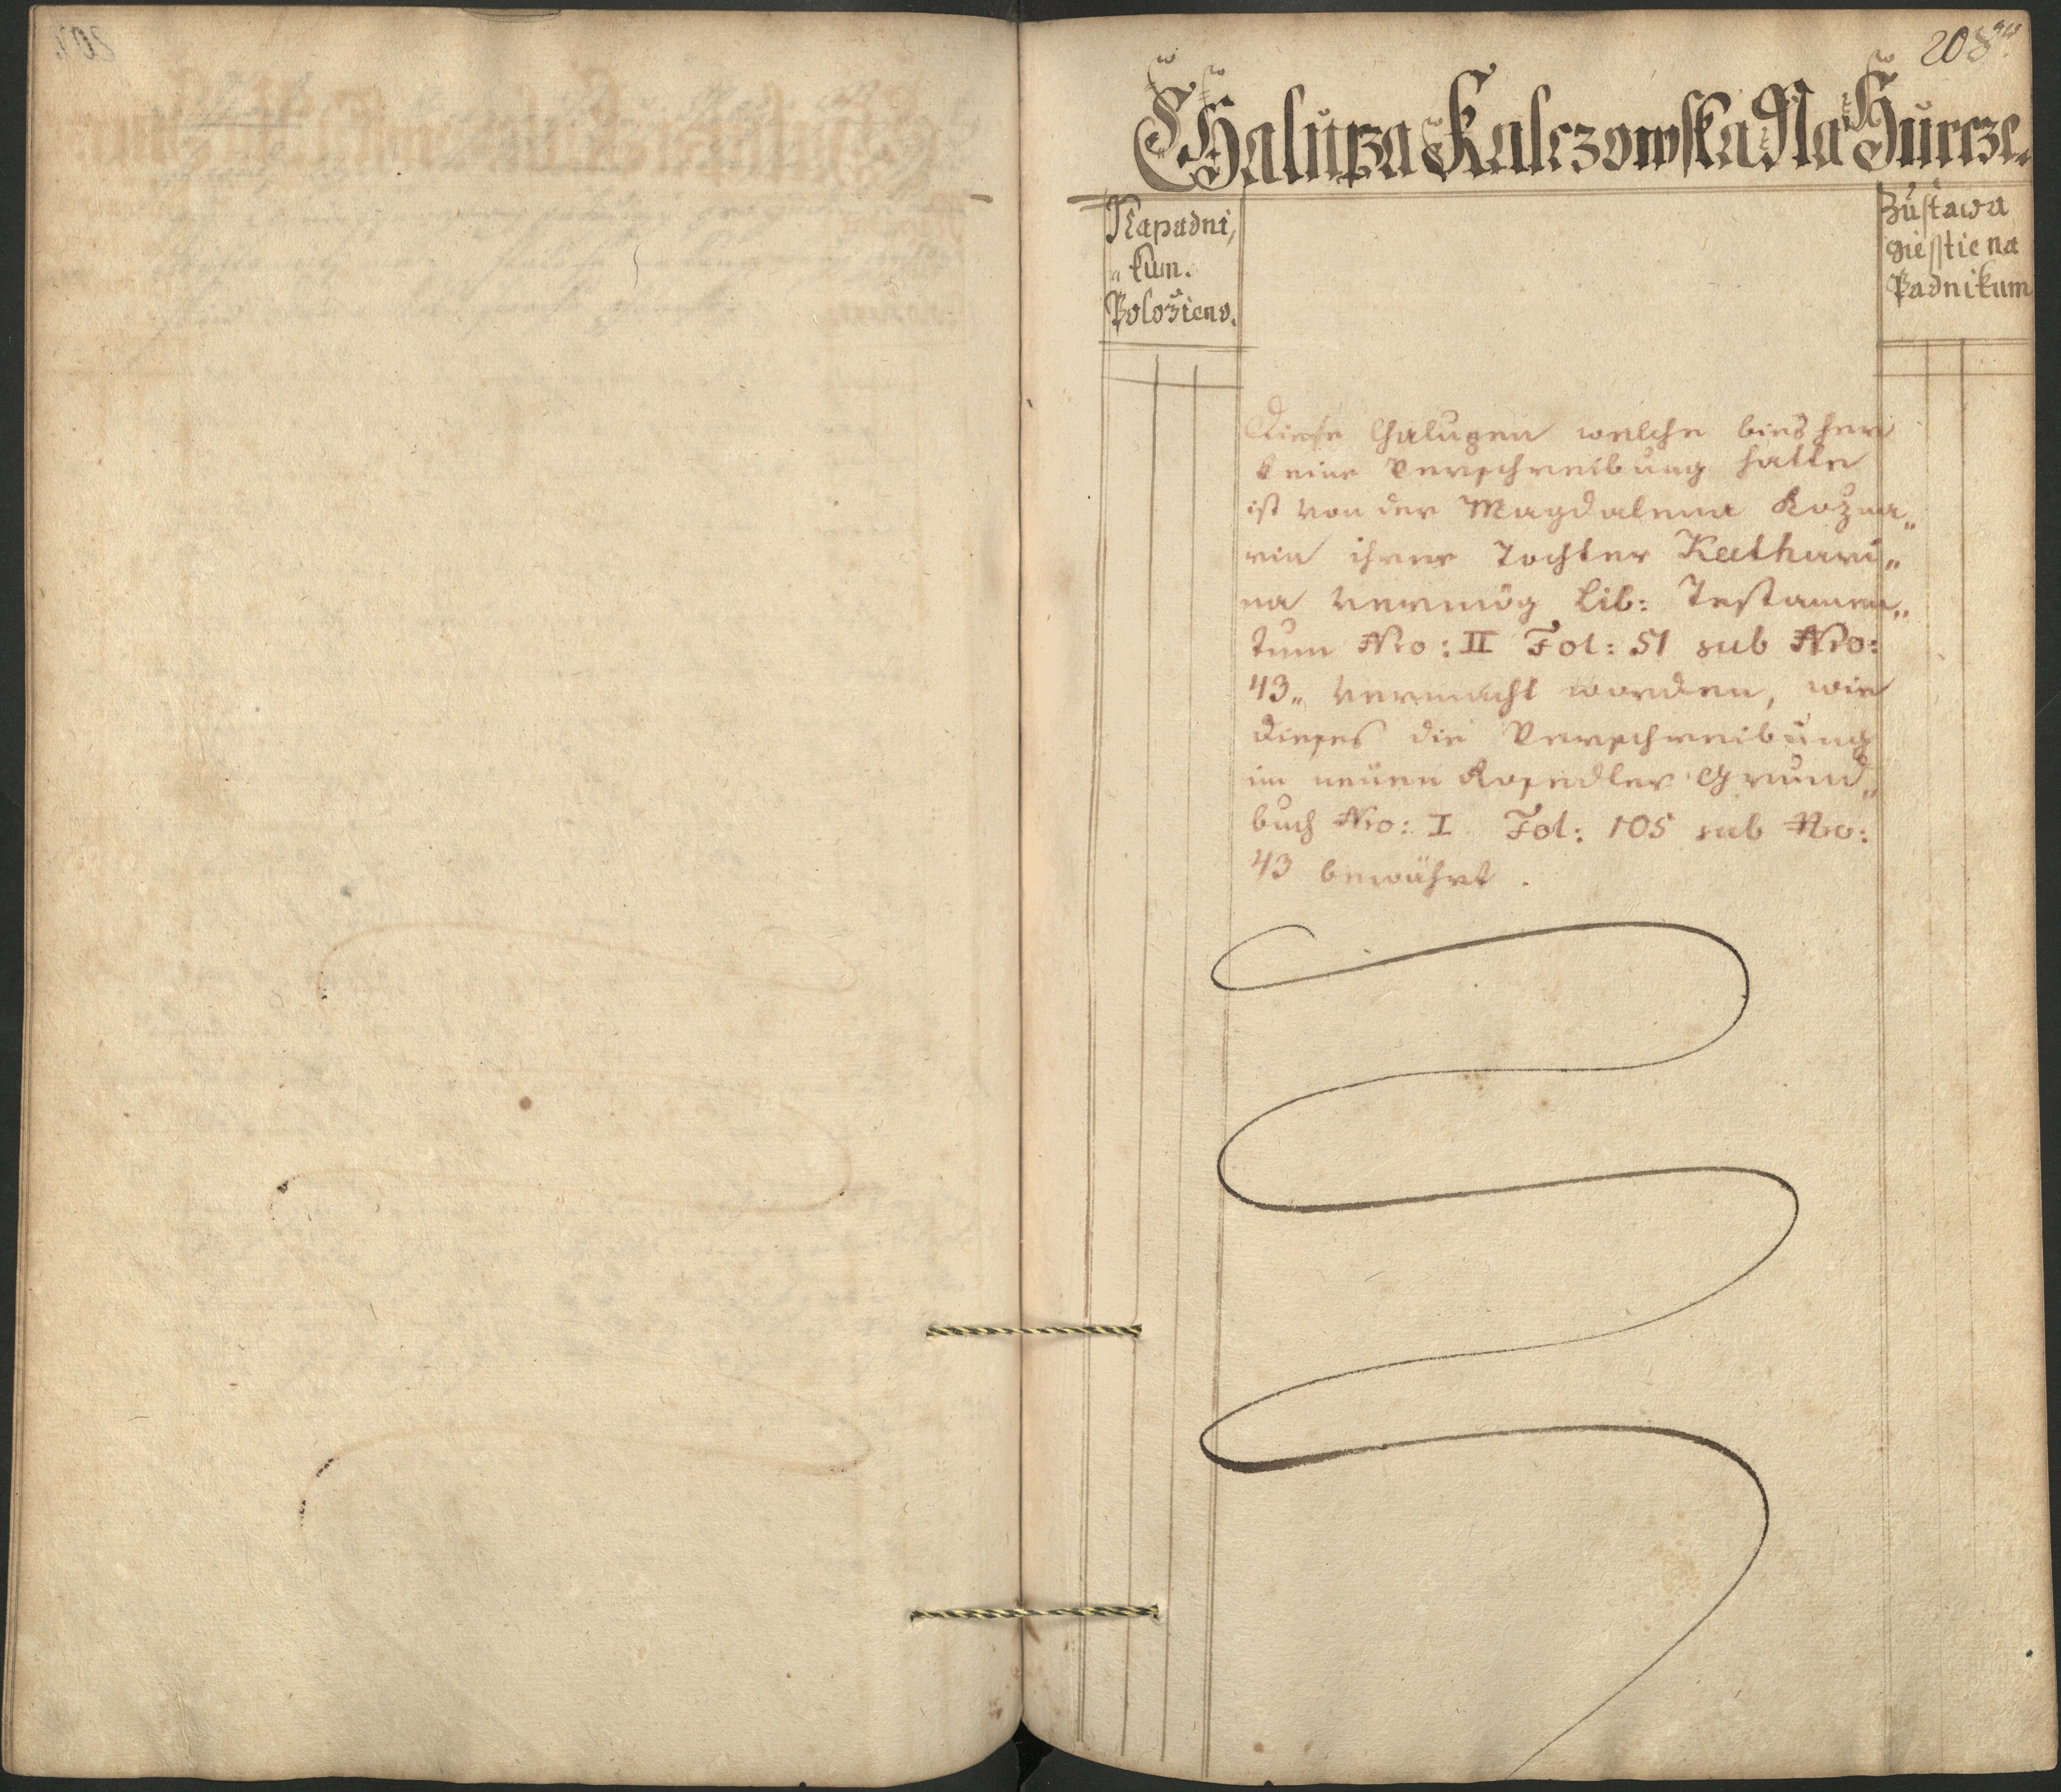 208
CHalupza Kalczowska Na Hurcze.
Napadni,
„kum.
Položieno.
Zustawa
giesstie na
Padnikum
Diese Chalupen welche bies her
keine Verschreibung hatte
ist von der Magdalena Kozna„
rin ihrer Tochter Kathari„
na vermög Lib: Testamen„
tum Nro: II Fol: 51 sub Nro:
43„ vermacht worden, wie
dieses die Verschreibung
im neuen Rosendler Grund„
buch Nro: I Fol: 105 sub Nro:
43 bewährt.